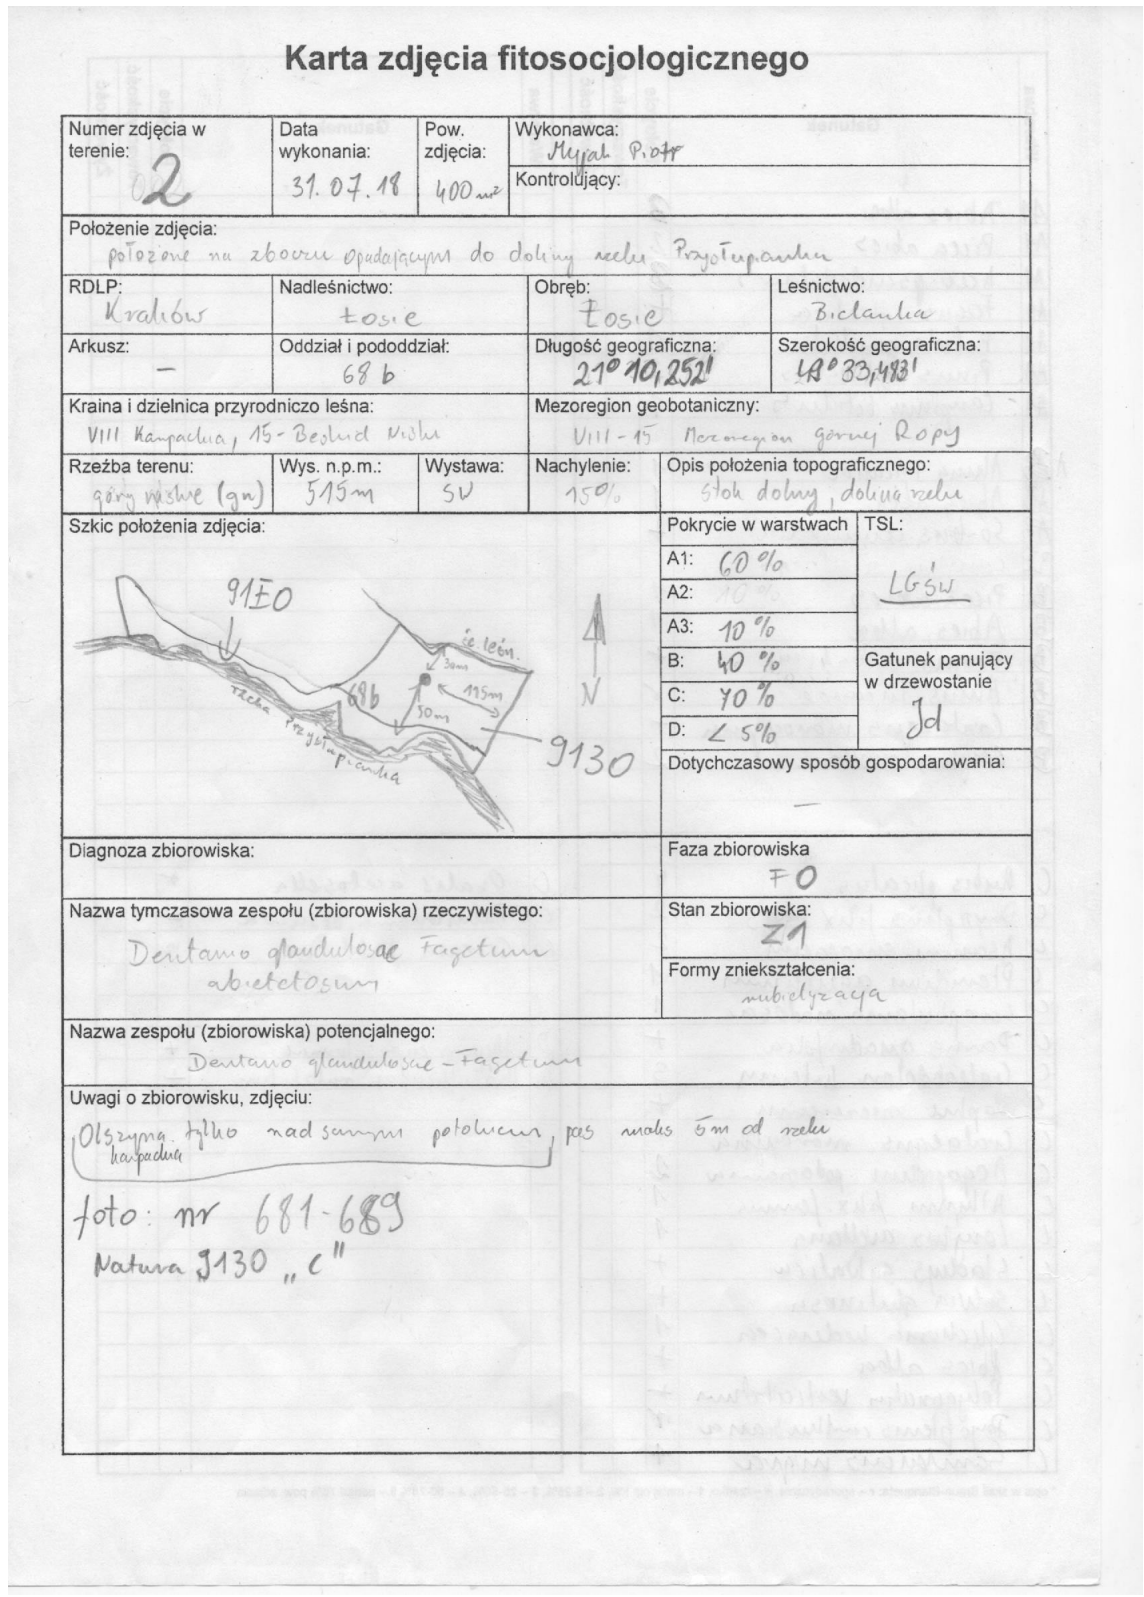 Karta zdjęcia fitosocjologicznego
Numer zdjęcia w terenie: 2
Data wykonania: 31.07.18
Pow. zdjęcia: 400 m²
Wykonawca: Myjak Piotr
Kontrolujący:
Położenie zdjęcia:
położone na zboczu opadającym do doliny rzeki Przysłupianka
RDLP: Kraków
Nadleśnictwo: Łosie
Obręb: Łosie
Leśnictwo: Bielanka
Arkusz: –
Oddział i pododdział: 68 b
Długość geograficzna: 21° 10,252'
Szerokość geograficzna: 49° 33,493'
Kraina i dzielnica przyrodniczo leśna: VIII Karpacka, 15 - Beskid Niski
Mezoregion geobotaniczny: VIII - 15 Mezoregion górnej Ropy
Rzeźba terenu: góry niskie (gn)
Wys. n.p.m.: 515m
Wystawa: SW
Nachylenie: 15%
Opis położenia topograficznego: stok dolny, dolina rzeki
Szkic położenia zdjęcia:
91E0
śc. leśn.
30m
68b
115m
50m
rzeka Przysłupianka
N
9130
Pokrycie w warstwach
A1: 60 %
A2: 10 %
A3: 10 %
B: 40 %
C: 70 %
D: < 5%
TSL: LGśw
Gatunek panujący w drzewostanie
Jd
Dotychczasowy sposób gospodarowania:
–
Diagnoza zbiorowiska:
Faza zbiorowiska
FO
Nazwa tymczasowa zespołu (zbiorowiska) rzeczywistego:
Dentario glandulosae Fagetum
abietetosum
Stan zbiorowiska:
Z1
Formy zniekształcenia:
rubietyzacja
Nazwa zespołu (zbiorowiska) potencjalnego:
Dentario glandulosae - Fagetum
Uwagi o zbiorowisku, zdjęciu:
Olszyna karpacka tylko nad samym potokiem, pas maks 5m od rzeki
foto: nr 681-689
Natura 9130 „c"